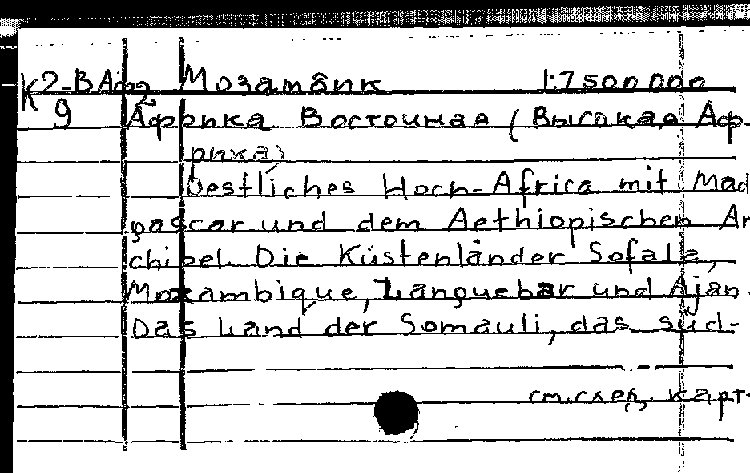 К2-В Аф2 Мозамбик 1:7500000
9 Африка Восточная (Высокая Аф-
рика)
Oestliches Hoch-Africa mit Mad
gascar und dem Aethiopischen Ar
chipel. Die Küstenländer Sofala,
Mozambique, Zanguebar und Ajan.
Das Land der Somauli, das süd-
см. след. карт